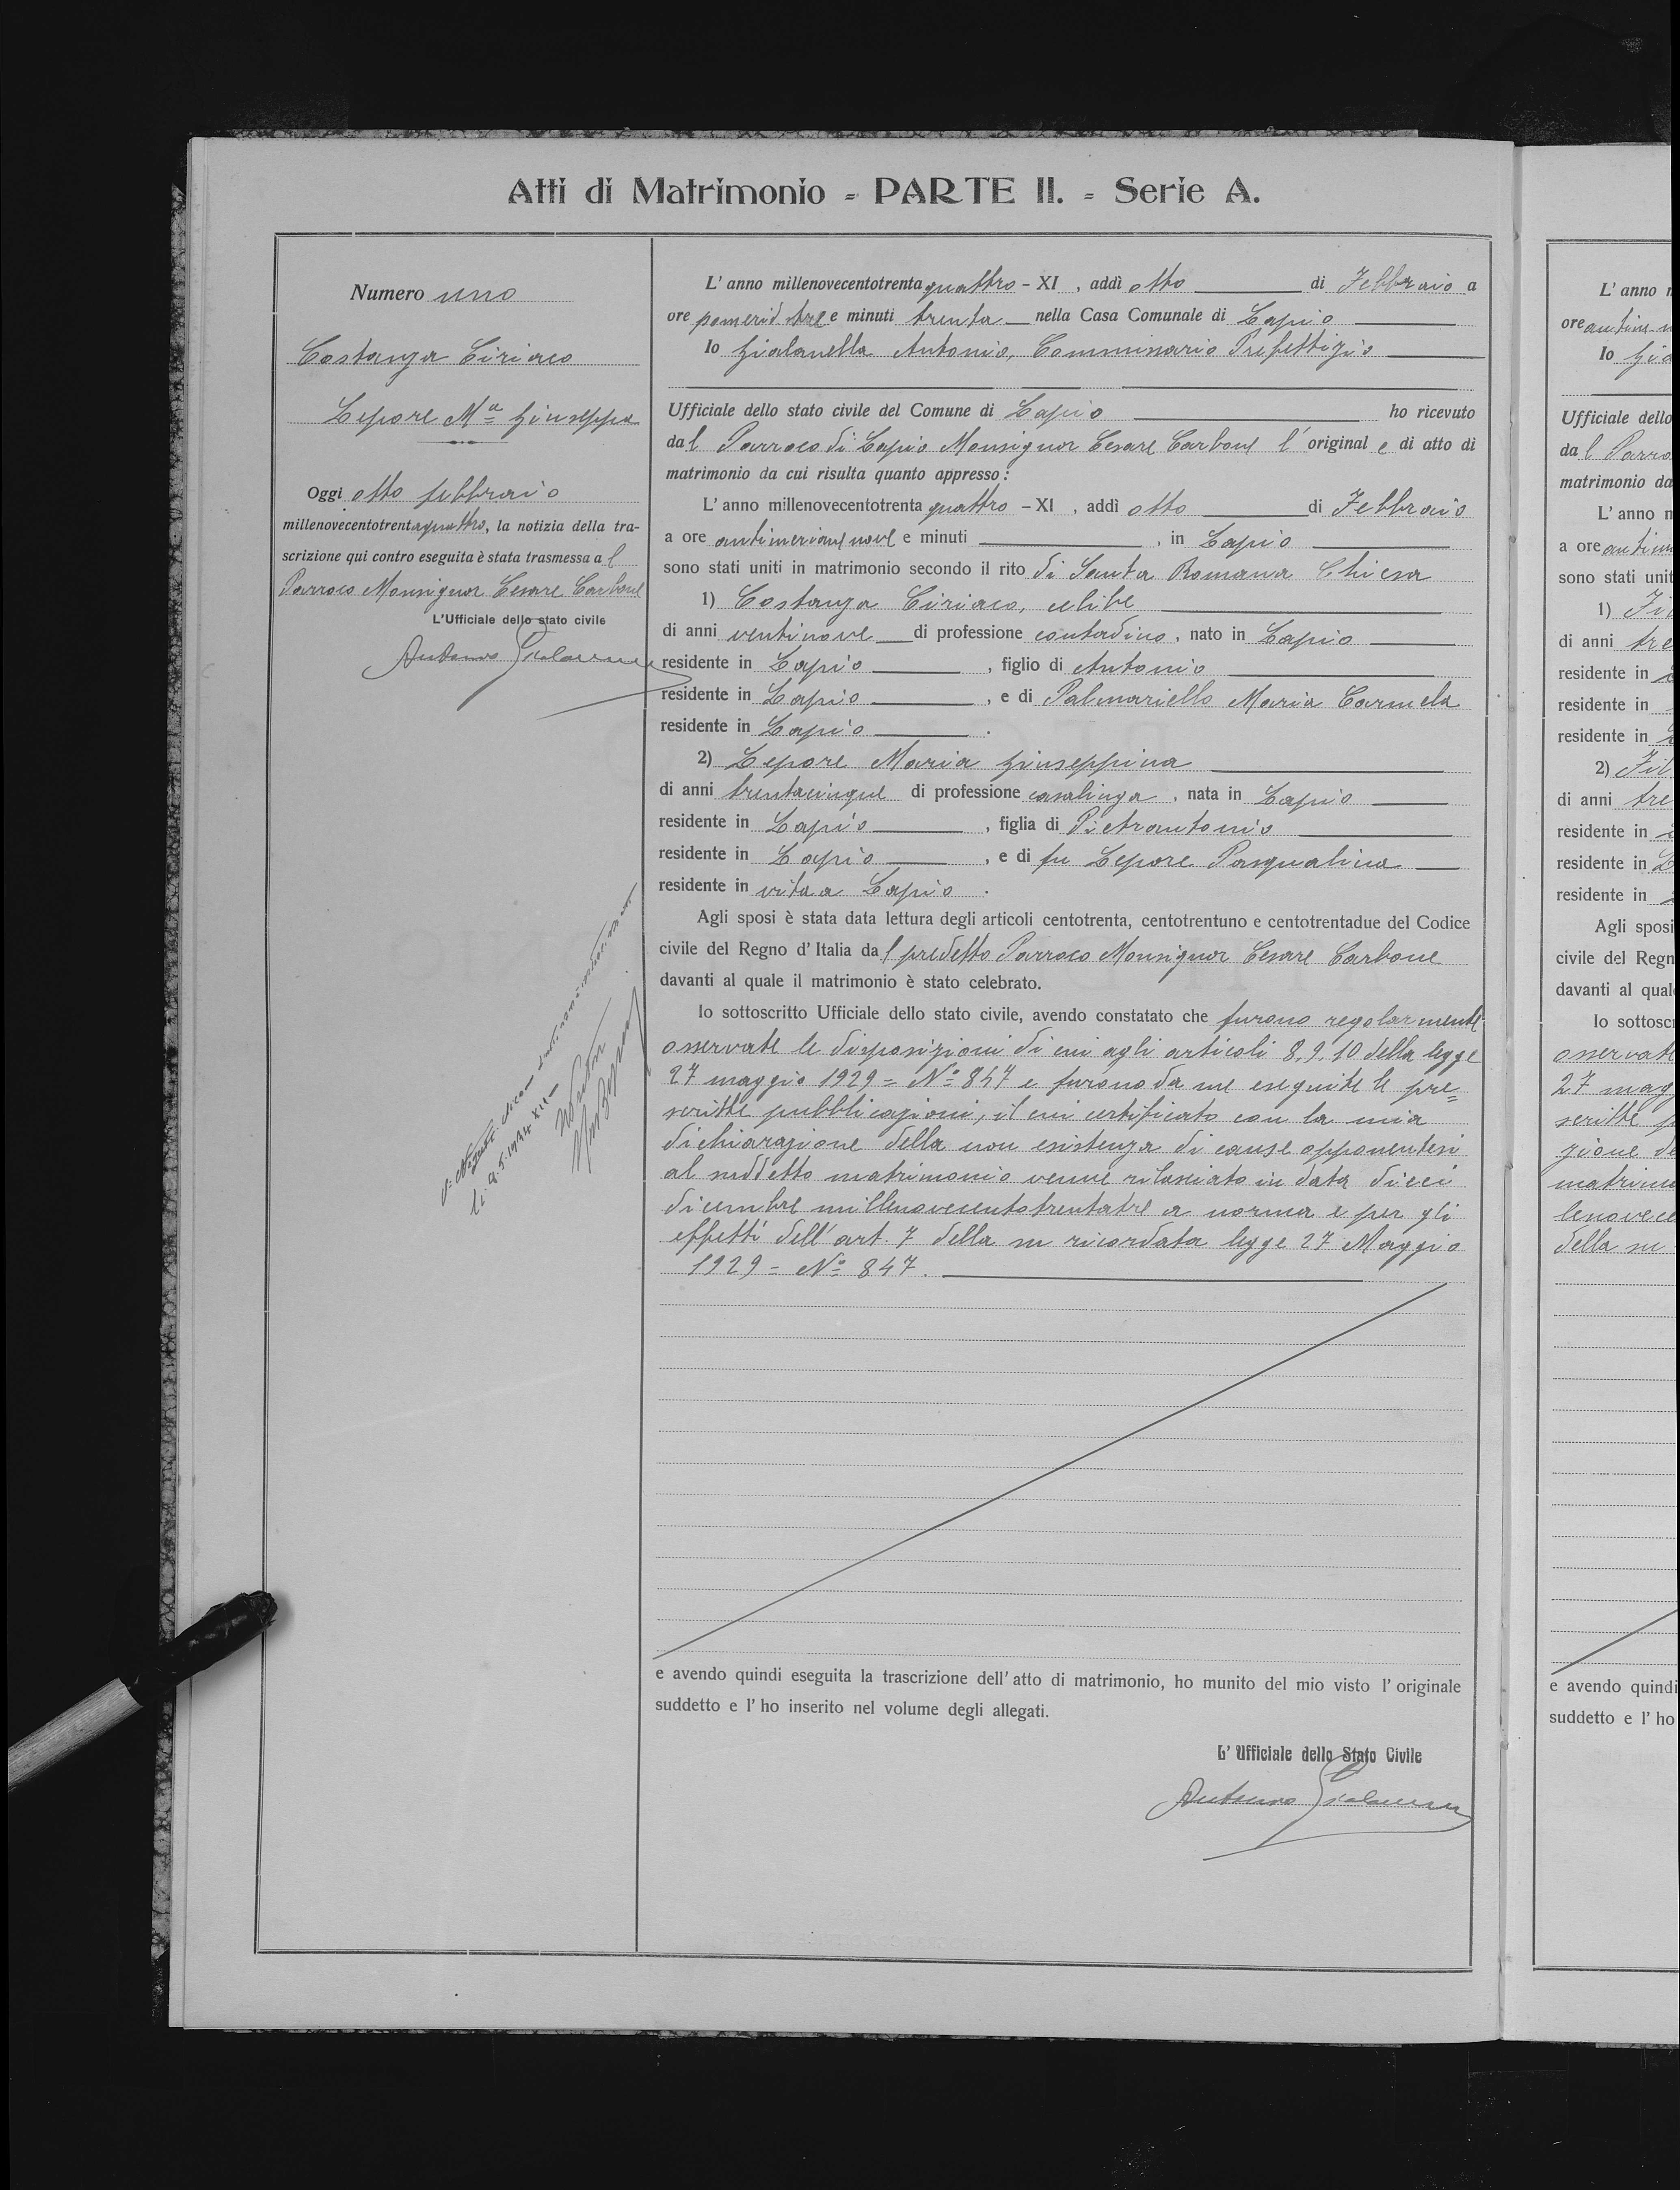 Atti di Matrimonio = PARTE II. = Serie A.
Numero uno
Costanza Ciriaco
Lepore Mª Giuseppa
Oggi otto febbraio
millenovecentotrentaquattro, la notizia della tra-
scrizione qui contro eseguita è stata trasmessa al
Parroco Monsignor Cesare Carbone
L'Ufficiale dello stato civile
Antonio
Lì 9.5.1934 XII
L' anno millenovecentotrentaquattro - XI , addì otto di Febbraio a
ore pomerid. tre e minuti trenta nella Casa Comunale di Lapio
Io Gialanella Antonio, Commissario Prefettizio
Ufficiale dello stato civile del Comune di Lapio ho ricevuto
dal Parroco di Lapio Monsignor Cesare Carbone l' originale di atto di
matrimonio da cui risulta quanto appresso:
L' anno millenovecentotrenta quattro - XI , addì otto di Febbraio
a ore antimeridiane nove e minuti , in Lapio
sono stati uniti in matrimonio secondo il rito di Santa Romana Chiesa
1) Costanza Ciriaco, celibe
di anni ventinove di professione contadino, nato in Lapio
residente in Lapio , figlio di Antonio
residente in Lapio , e di Palmariello Maria Carmela
residente in Lapio .
2) Lepore Maria Giuseppina
di anni trentacinque di professione casalinga , nata in Lapio
residente in Lapio , figlia di Pietrantonio
residente in Lapio , e di fu Lepore Pasqualina
residente in vita a Lapio .
Agli sposi è stata data lettura degli articoli centotrenta, centotrentuno e centotrentadue del Codice
civile del Regno d' Italia dal predetto Parroco Monsignor Cesare Carbone
davanti al quale il matrimonio è stato celebrato.
Io sottoscritto Ufficiale dello stato civile, avendo constatato che furono regolarmente
osservate le disposizioni di cui agli articoli 8, 9, 10 della legge
27 maggio 1929 = Nº 847 e furono da me eseguite le pre=
scritte pubblicazioni, il cui certificato con la mia
dichiarazione della non esistenza di cause opponentesi
al suddetto matrimonio venne rilasciato in data dieci
dicembre millenovecentotrentatre a norma e per gli
effetti dell' art. 7 della su ricordata legge 27 Maggio
1929 = Nº 847.
e avendo quindi eseguita la trascrizione dell' atto di matrimonio, ho munito del mio visto l' originale
suddetto e l' ho inserito nel volume degli allegati.
L' Ufficiale dello Stato Civile
Antonio
L' anno
ore antim
Io Gia
Ufficiale dello
dal Parro
matrimonio da
L' anno
a ore antim
sono stati unit
1)
di anni tre
residente in
residente in
residente in
2)
di anni tre
residente in
residente in
residente in
Agli sposi
civile del Regn
davanti al qual
Io sottoscr
osservate
27 mag
scritte p
zione de
matrimo
lenovece
della su
e avendo quindi
suddetto e l' ho